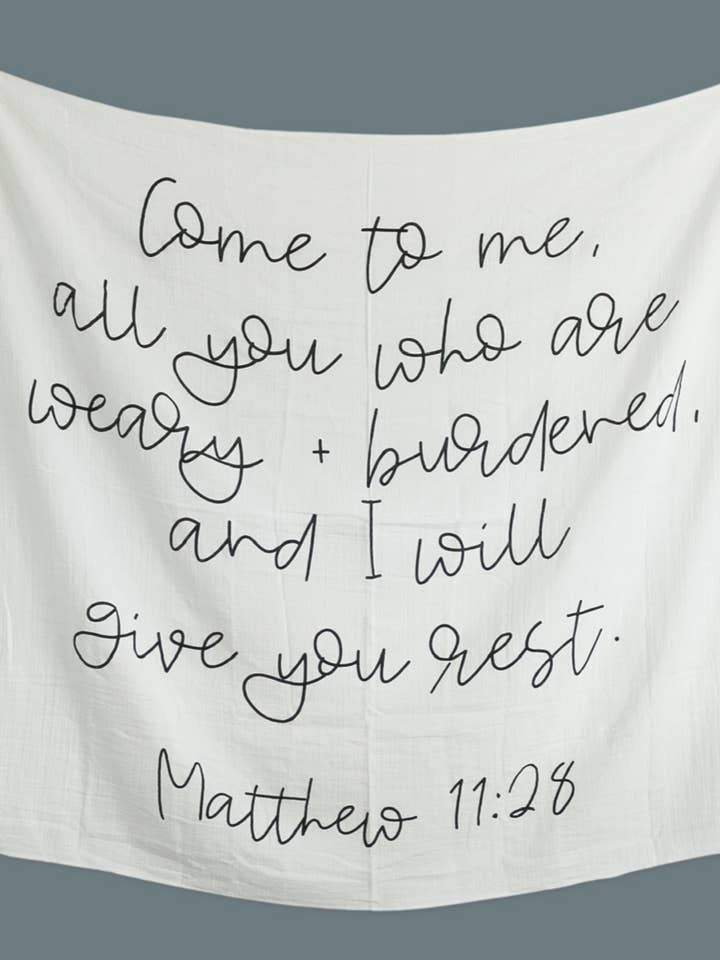 Come to me,
all you who are
weary + burdened,
and I will
give you rest.
Matthew 11:28